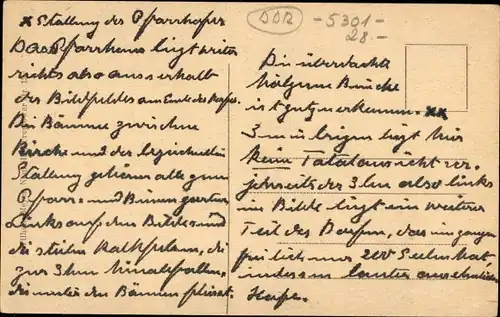 x Stallung des Pfarrhofes
Das Pfarrhaus liegt weiter
rechts also ausserhalb
des Bildfeldes am Ende des
Die Bäume zwischen
Kirche und der bezeichneten
Stallung gehören alle zum
Pfarr- und
Links auf dem Bilde sind
die steilen Kalkfelsen, die
zur Ilm hinabfallen,
die unter den Bäumen fliesst.
DDR
-5301-
28.-
Die überdachte
hölzerne Brücke
ist gut zu erkennen. xx
Im übrigen liegt hier
keine Totalansicht vor.
jenseits der Ilm also links
im Bilde liegt ein weiterer
Teil des Dorfes, das im ganzen
freilich nur 200 Seelen hat,
indessen lauter
Höfe.